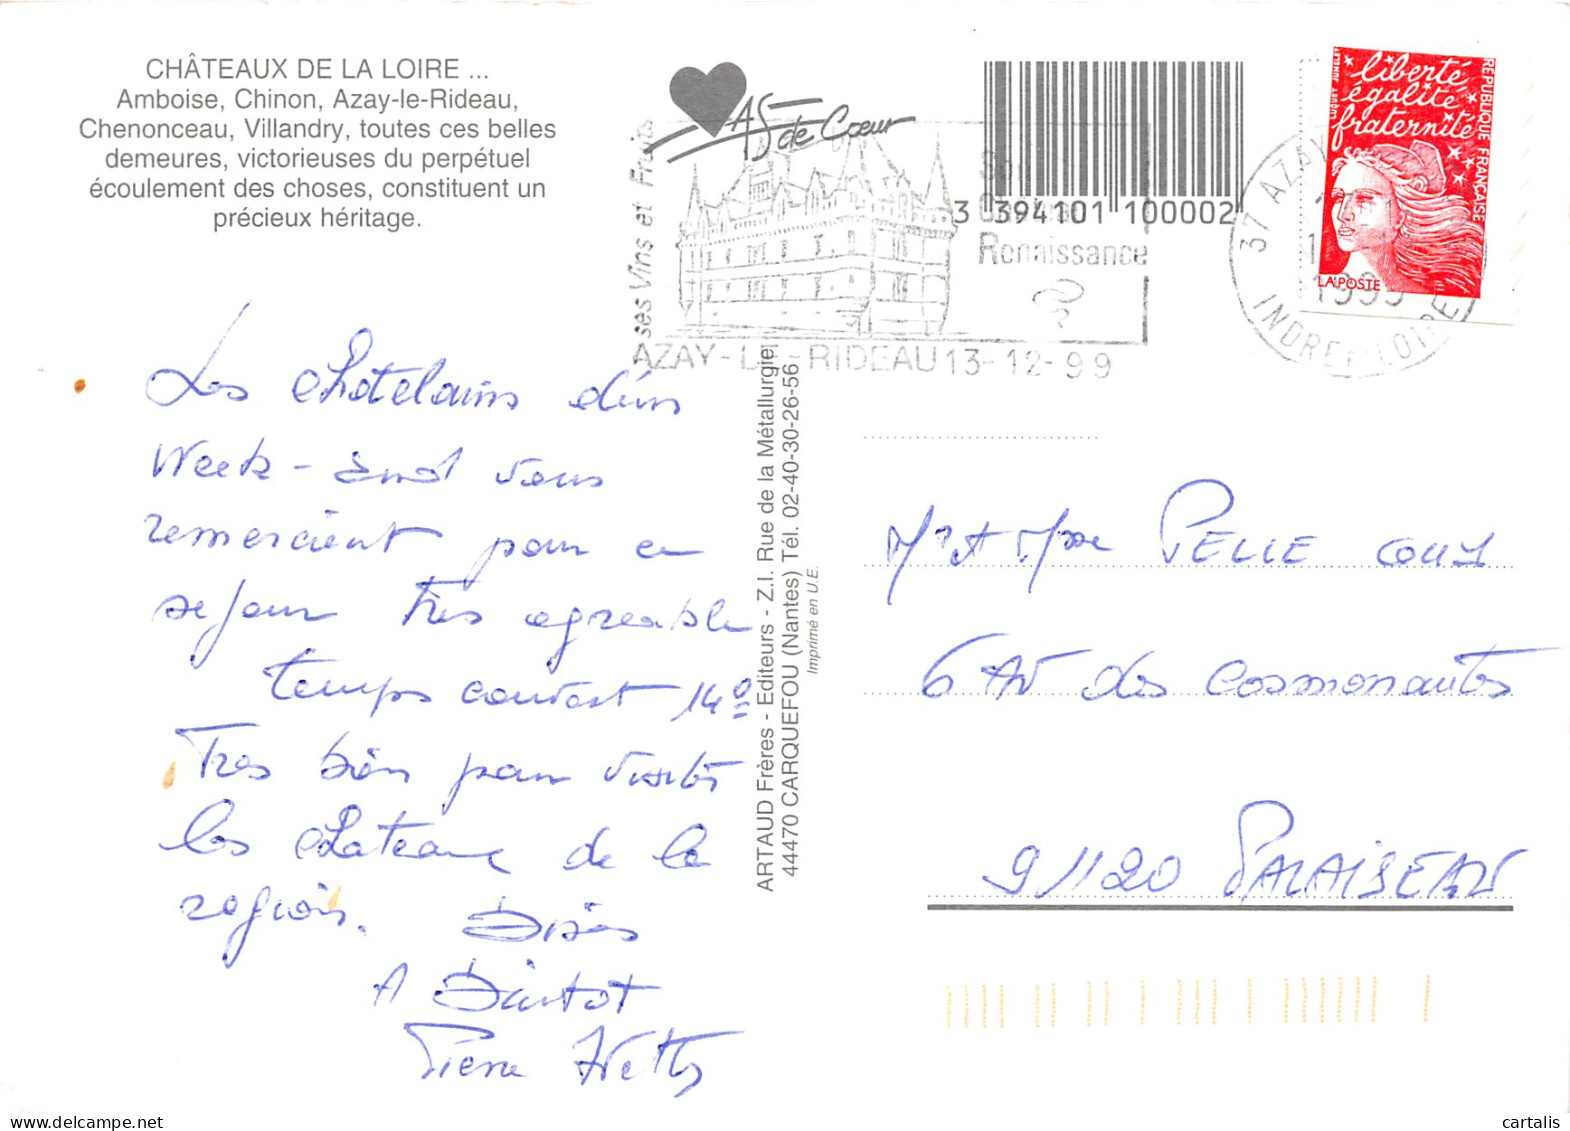 CHÂTEAUX DE LA LOIRE ...
Amboise, Chinon, Azay-le-Rideau,
Chenonceau, Villandry, toutes ces belles
demeures, victorieuses du perpétuel
écoulement des choses, constituent un
précieux héritage.
AS de Cœur
3 394101 100002
ses Vins et Fruits
Renaissance
AZAY-LE-RIDEAU 13-12-99
37 AZAY
1999
INDRE ET LOIRE
liberté
égalité
fraternité
REPUBLIQUE FRANÇAISE
LUQUET JUMELET
LA POSTE
Les châtelains d'un
Week-end vous
remercient pour ce
sejour très agreable
temps couvert 14º
Très bien pour visiter
les chateaux de la
region.
A Bientot
Pierre
ARTAUD Frères - Editeurs - Z.I. Rue de la Métallurgie
44470 CARQUEFOU (Nantes) Tél. 02-40-30-26-56
Imprimé en U.E.
Mr et Mme PELLE
6 AV des Cosmonautes
91120 PALAISEAU
cartalis